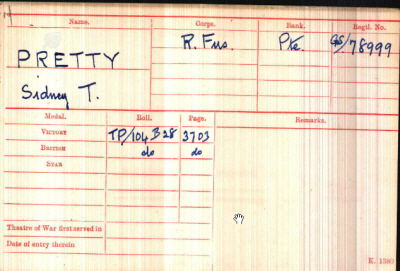 Name. Corps. Rank. Regtl. No.
PRETTY R. Fus. Pte GS/78999
Sidney T.
Medal. Roll. Page. Remarks.
VICTORY TP/104 B28 3703
BRITISH do do
STAR
Theatre of War first served in
Date of entry therein
K. 1380